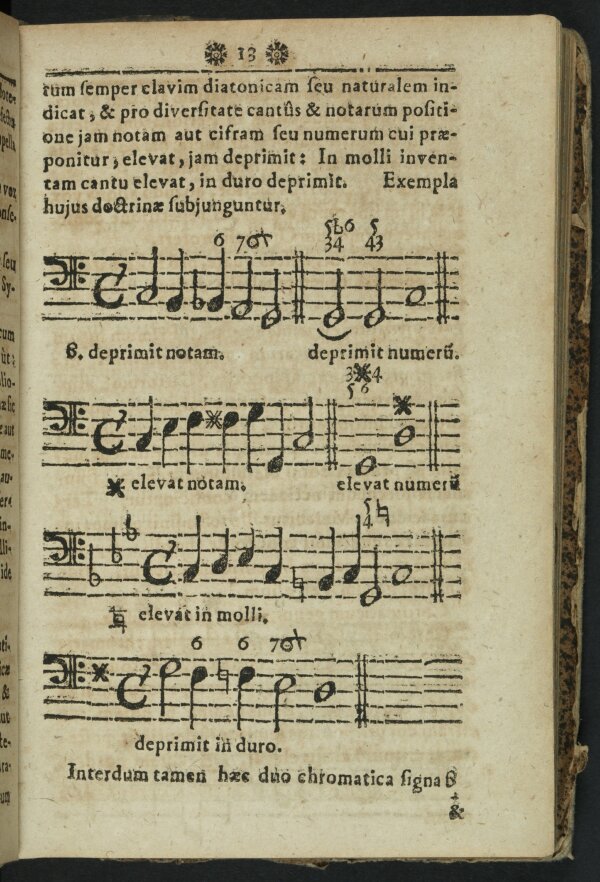 13
tum semper clavim diatonicam seu naturalem in-
dicat, & pro diversitate cantûs & notarum positi-
one jam notam aut cifram seu numerum cui præ-
ponitur, elevat, jam deprimit: In molli inven-
tam cantu elevat, in duro deprimit. Exempla
hujus doctrinæ subjunguntur.
6 76 5♭6 5
34 43
B. deprimit notam. deprimit numerū.
3※4
5 6
※ elevat notam. elevat numerū
5♮
4
♮ elevat in molli.
6 6 76
deprimit in duro.
Interdum tamen hæc duo chromatica signa B
&